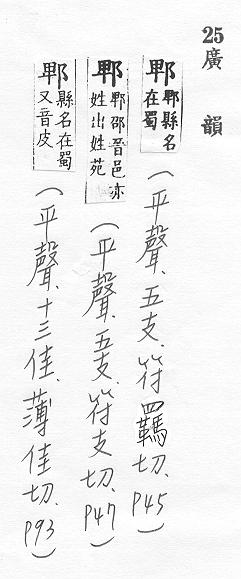 25
廣韻
郫 郫縣名
在蜀
(平聲、五支、符羈切、P45)
郫 郫邵晉邑亦
姓出姓苑
(平聲、五支、符支切、P47)
郫 縣名在蜀
又音皮
(平聲、十三佳、薄佳切、P93)